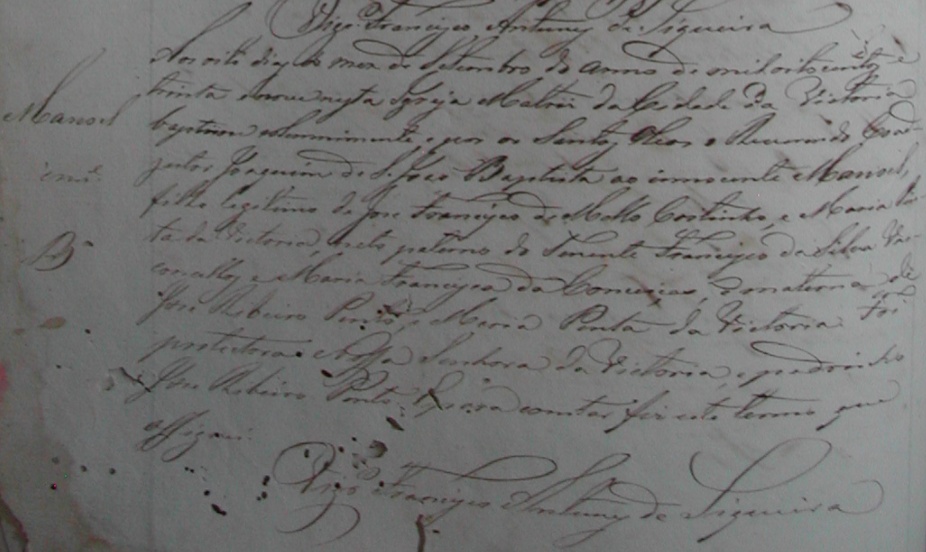 Vigrº Francisco Antunes de Siqueira
Aos oito dias do mez de Setembro do anno de mil oitocentos e
trinta e nove nesta Igreja Matriz da Cidade da Victoria
Manoel
baptizou solemnemente, e poz os Santos Oleos o Reverendo Coad-
juctor Joaquim de S. João Baptista ao innocente Manoel,
filho legitimo de José Francisco de Mello Coutinho, e Maria Pin-
ta da Victoria, neto paterno do Tenente Francisco da Silva Vas-
concellos, e Maria Francisca da Conceição, e materno de
José Ribeiro Pinto, e Maria Pinta da Victoria. Foi
protectora Nossa Senhora da Victoria, e padrinho
José Ribeiro Pinto. E para constar fiz este termo, que
assignei.
Vigrº Francisco Antunes de Siqueira